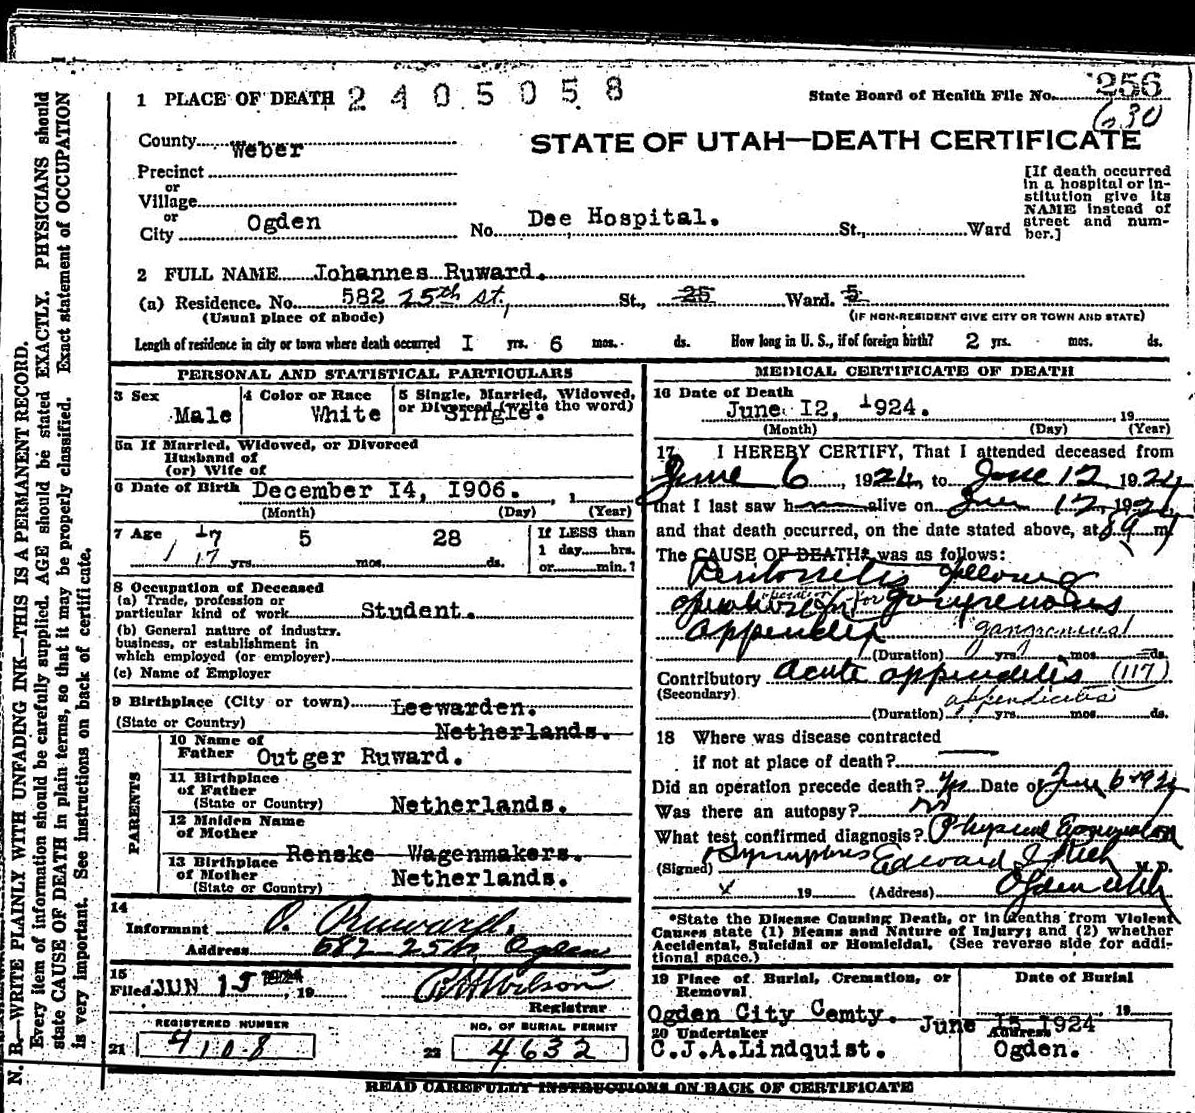 1 PLACE OF DEATH 2405058
State Board of Health File No. 256
630
County Weber
STATE OF UTAH—DEATH CERTIFICATE
Precinct
or
Village
or
City Ogden No. Dee Hospital. St., Ward
[If death occurred
in a hospital or in-
stitution give its
NAME instead of
street and num-
ber.]
2 FULL NAME Johannes Ruward.
(a) Residence. No. 582 25th st., St., 25 Ward. 5
(Usual place of abode) (IF NON-RESIDENT GIVE CITY OR TOWN AND STATE)
Length of residence in city or town where death occurred I yrs. 6 mos. ds. How long in U. S., if of foreign birth? 2 yrs. mos. ds.
PERSONAL AND STATISTICAL PARTICULARS
3 Sex Male
4 Color or Race White
5 Single, Married, Widowed,
or Divorced (write the word) Single.
5a If Married, Widowed, or Divorced
Husband of
(or) Wife of
6 Date of Birth December I4, I906. , 1
(Month) (Day) (Year)
7 Age 17 5 28
17 yrs. mos. ds.
If LESS than
1 day hrs.
or min.?
8 Occupation of Deceased
(a) Trade, profession or
particular kind of work Student.
(b) General nature of industry.
business, or establishment in
which employed (or employer)
(c) Name of Employer
9 Birthplace (City or town) Leewarden.
(State or Country) Netherlands.
PARENTS
10 Name of
Father Outger Ruward.
11 Birthplace
of Father
(State or Country) Netherlands.
12 Maiden Name
of Mother
Renske Wagenmakers.
13 Birthplace
of Mother Netherlands.
(State or Country)
14
Informant O. Ruward.
Address 582 25th Ogden
15
Filed JUN 15 1924, 19
Registrar
REGISTERED NUMBER
21 4108
NO. OF BURIAL PERMIT
22 4632
MEDICAL CERTIFICATE OF DEATH
16 Date of Death
June I2, 1924. 19
(Month) (Day) (Year)
17 I HEREBY CERTIFY, That I attended deceased from
June 6, 1924, to June 12 1924
that I last saw h alive on June 12, 1924
and that death occurred, on the date stated above, at m
The CAUSE OF DEATH* was as follows:
Peritonitis following
operation for gangrenous
appendix gangrenous
(Duration) yrs. mos. ds.
Contributory Acute appendicitis (117)
(Secondary) appendicitis
(Duration) yrs. mos. ds.
18 Where was disease contracted
if not at place of death?
Did an operation precede death? Yes Date of June 6 1924
Was there an autopsy? no
What test confirmed diagnosis? Physical Examination
& Symptoms
(Signed) Edward M. D.
19 (Address) Ogden Utah
*State the Disease Causing Death, or in deaths from Violent
Causes state (1) Means and Nature of Injury; and (2) whether
Accidental, Suicidal or Homicidal. (See reverse side for addi-
tional space.)
19 Place of Burial, Cremation, or
Removal
Ogden City Cemty.
Date of Burial
June 15 1924 19
20 Undertaker
C.J.A.Lindquist.
Address
Ogden.
READ CAREFULLY INSTRUCTIONS ON BACK OF CERTIFICATE
N. B.—WRITE PLAINLY WITH UNFADING INK—THIS IS A PERMANENT RECORD.
Every item of information should be carefully supplied. AGE should be stated EXACTLY. PHYSICIANS should
state CAUSE OF DEATH in plain terms, so that it may be properly classified. Exact statement of OCCUPATION
is very important. See instructions on back of certificate.